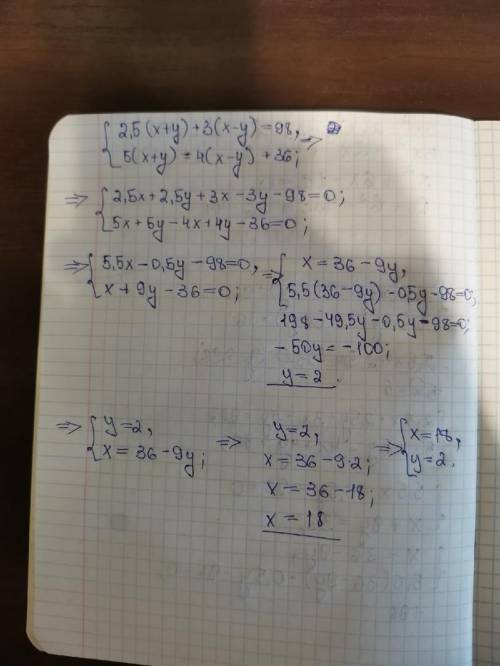 { 2,5(x+y)+3(x-y)=98, =>
{ 5(x+y)=4(x-y)+36;
=> { 2,5x+2,5y+3x-3y-98=0;
{ 5x+5y-4x+4y-36=0;
=> { 5,5x-0,5y-98=0, => { x=36-9y,
{ x+9y-36=0; { 5,5(36-9y)-0,5y-98=0;
198-49,5y-0,5y-98=0;
-50y=-100;
y=2.
=> { y=2, => y=2, => { x=18,
{ x=36-9y; x=36-9·2; { y=2.
x=36-18;
x=18